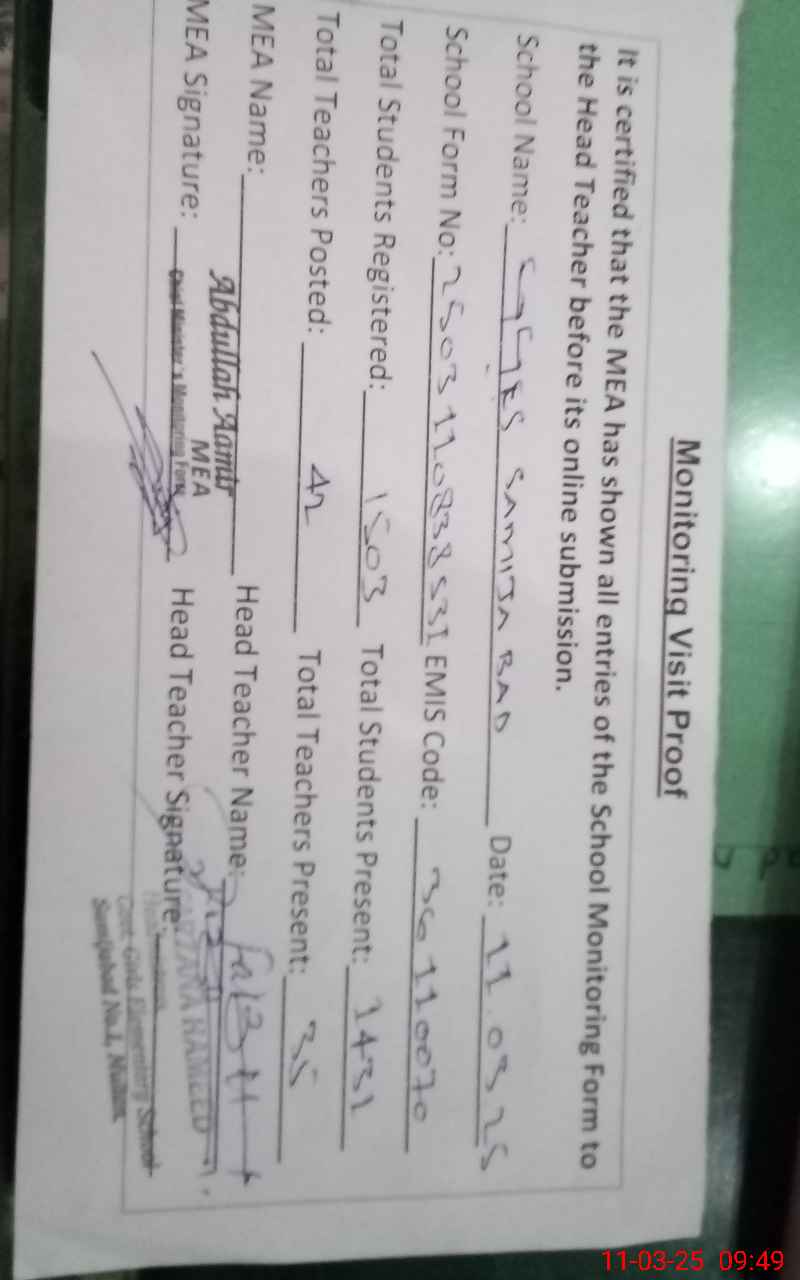 Monitoring Visit Proof
It is certified that the MEA has shown all entries of the School Monitoring Form to
the Head Teacher before its online submission.
School Name: SAMIJA BAD Date: 11.03.25
School Form No: 2503110838531 EMIS Code: 36110070
Total Students Registered: 1503 Total Students Present: 1431
Total Teachers Posted: 42 Total Teachers Present: 35
MEA Name: Abdullah Aamir Head Teacher Name:
MEA
MEA Signature: Chief Minister's Monitoring Force Head Teacher Signature:
HAMEED
Govt. Girls Elementary School
No.1,
11-03-25 09:49